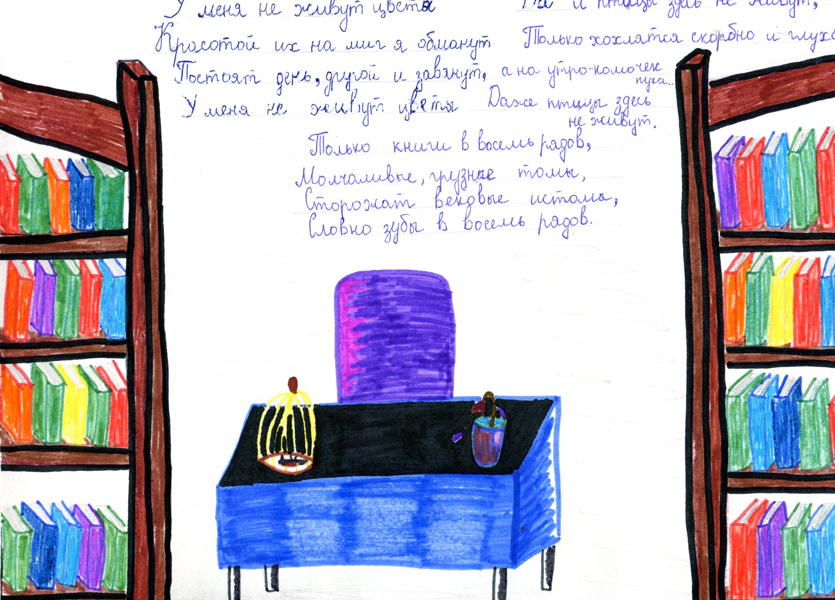 У меня не живут цветы
Красотой их на миг я обманут
Постоят день, другой и завянут,
У меня не живут цветы
Да и птицы здесь не живут,
Только хохлятся скорбно и глухо
а на утро-комочек
пуха..
Даже птицы здесь
не живут.
Только книги в восемь рядов,
Молчаливые, грузные томы,
Сторожат вековые истомы,
Словно зубы в восемь рядов.